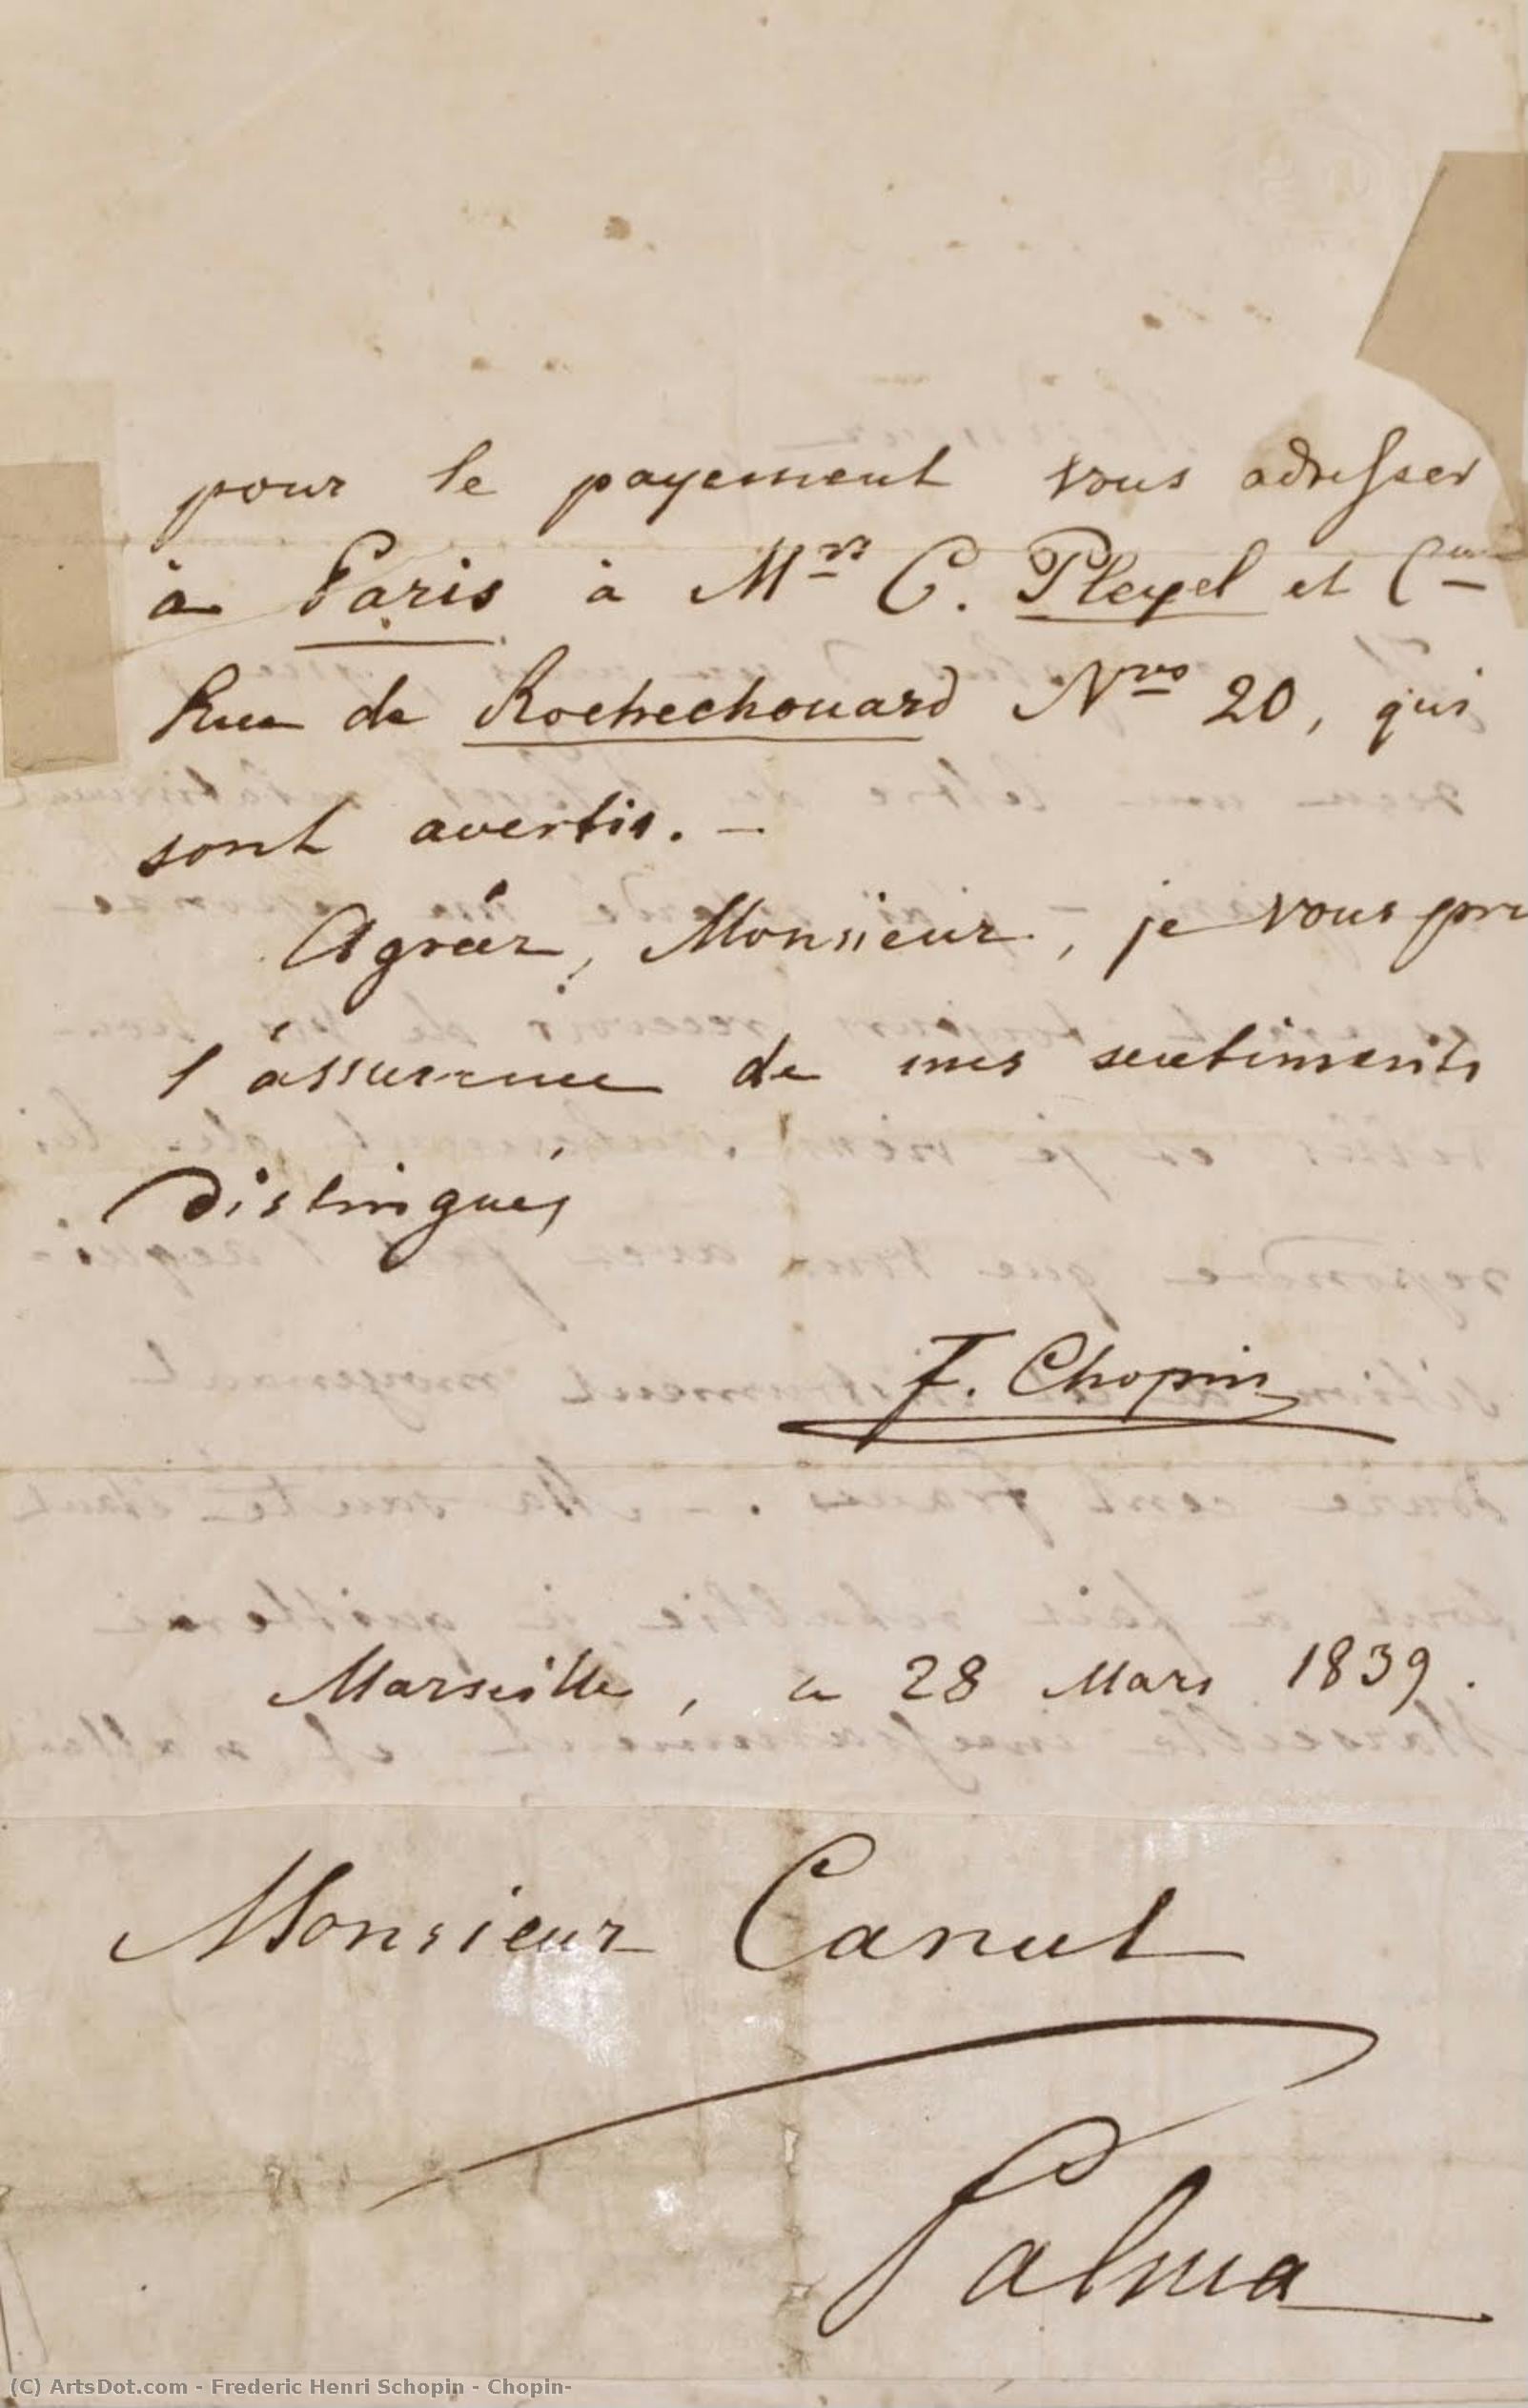 pour le payement vous adresser
à Paris à Mrs C. Pleyel et Cie
Rue de Rochechouard Nro 20, qui
sont avertis. —
Agréez, Monsieur, je vous pri
l'assurance de mes sentiments
distingués
F. Chopin
Marseille, ce 28 Mars 1839.
Monsieur Canut
Palma
(C) ArtsDot.com - Frederic Henri Schopin - Chopin-